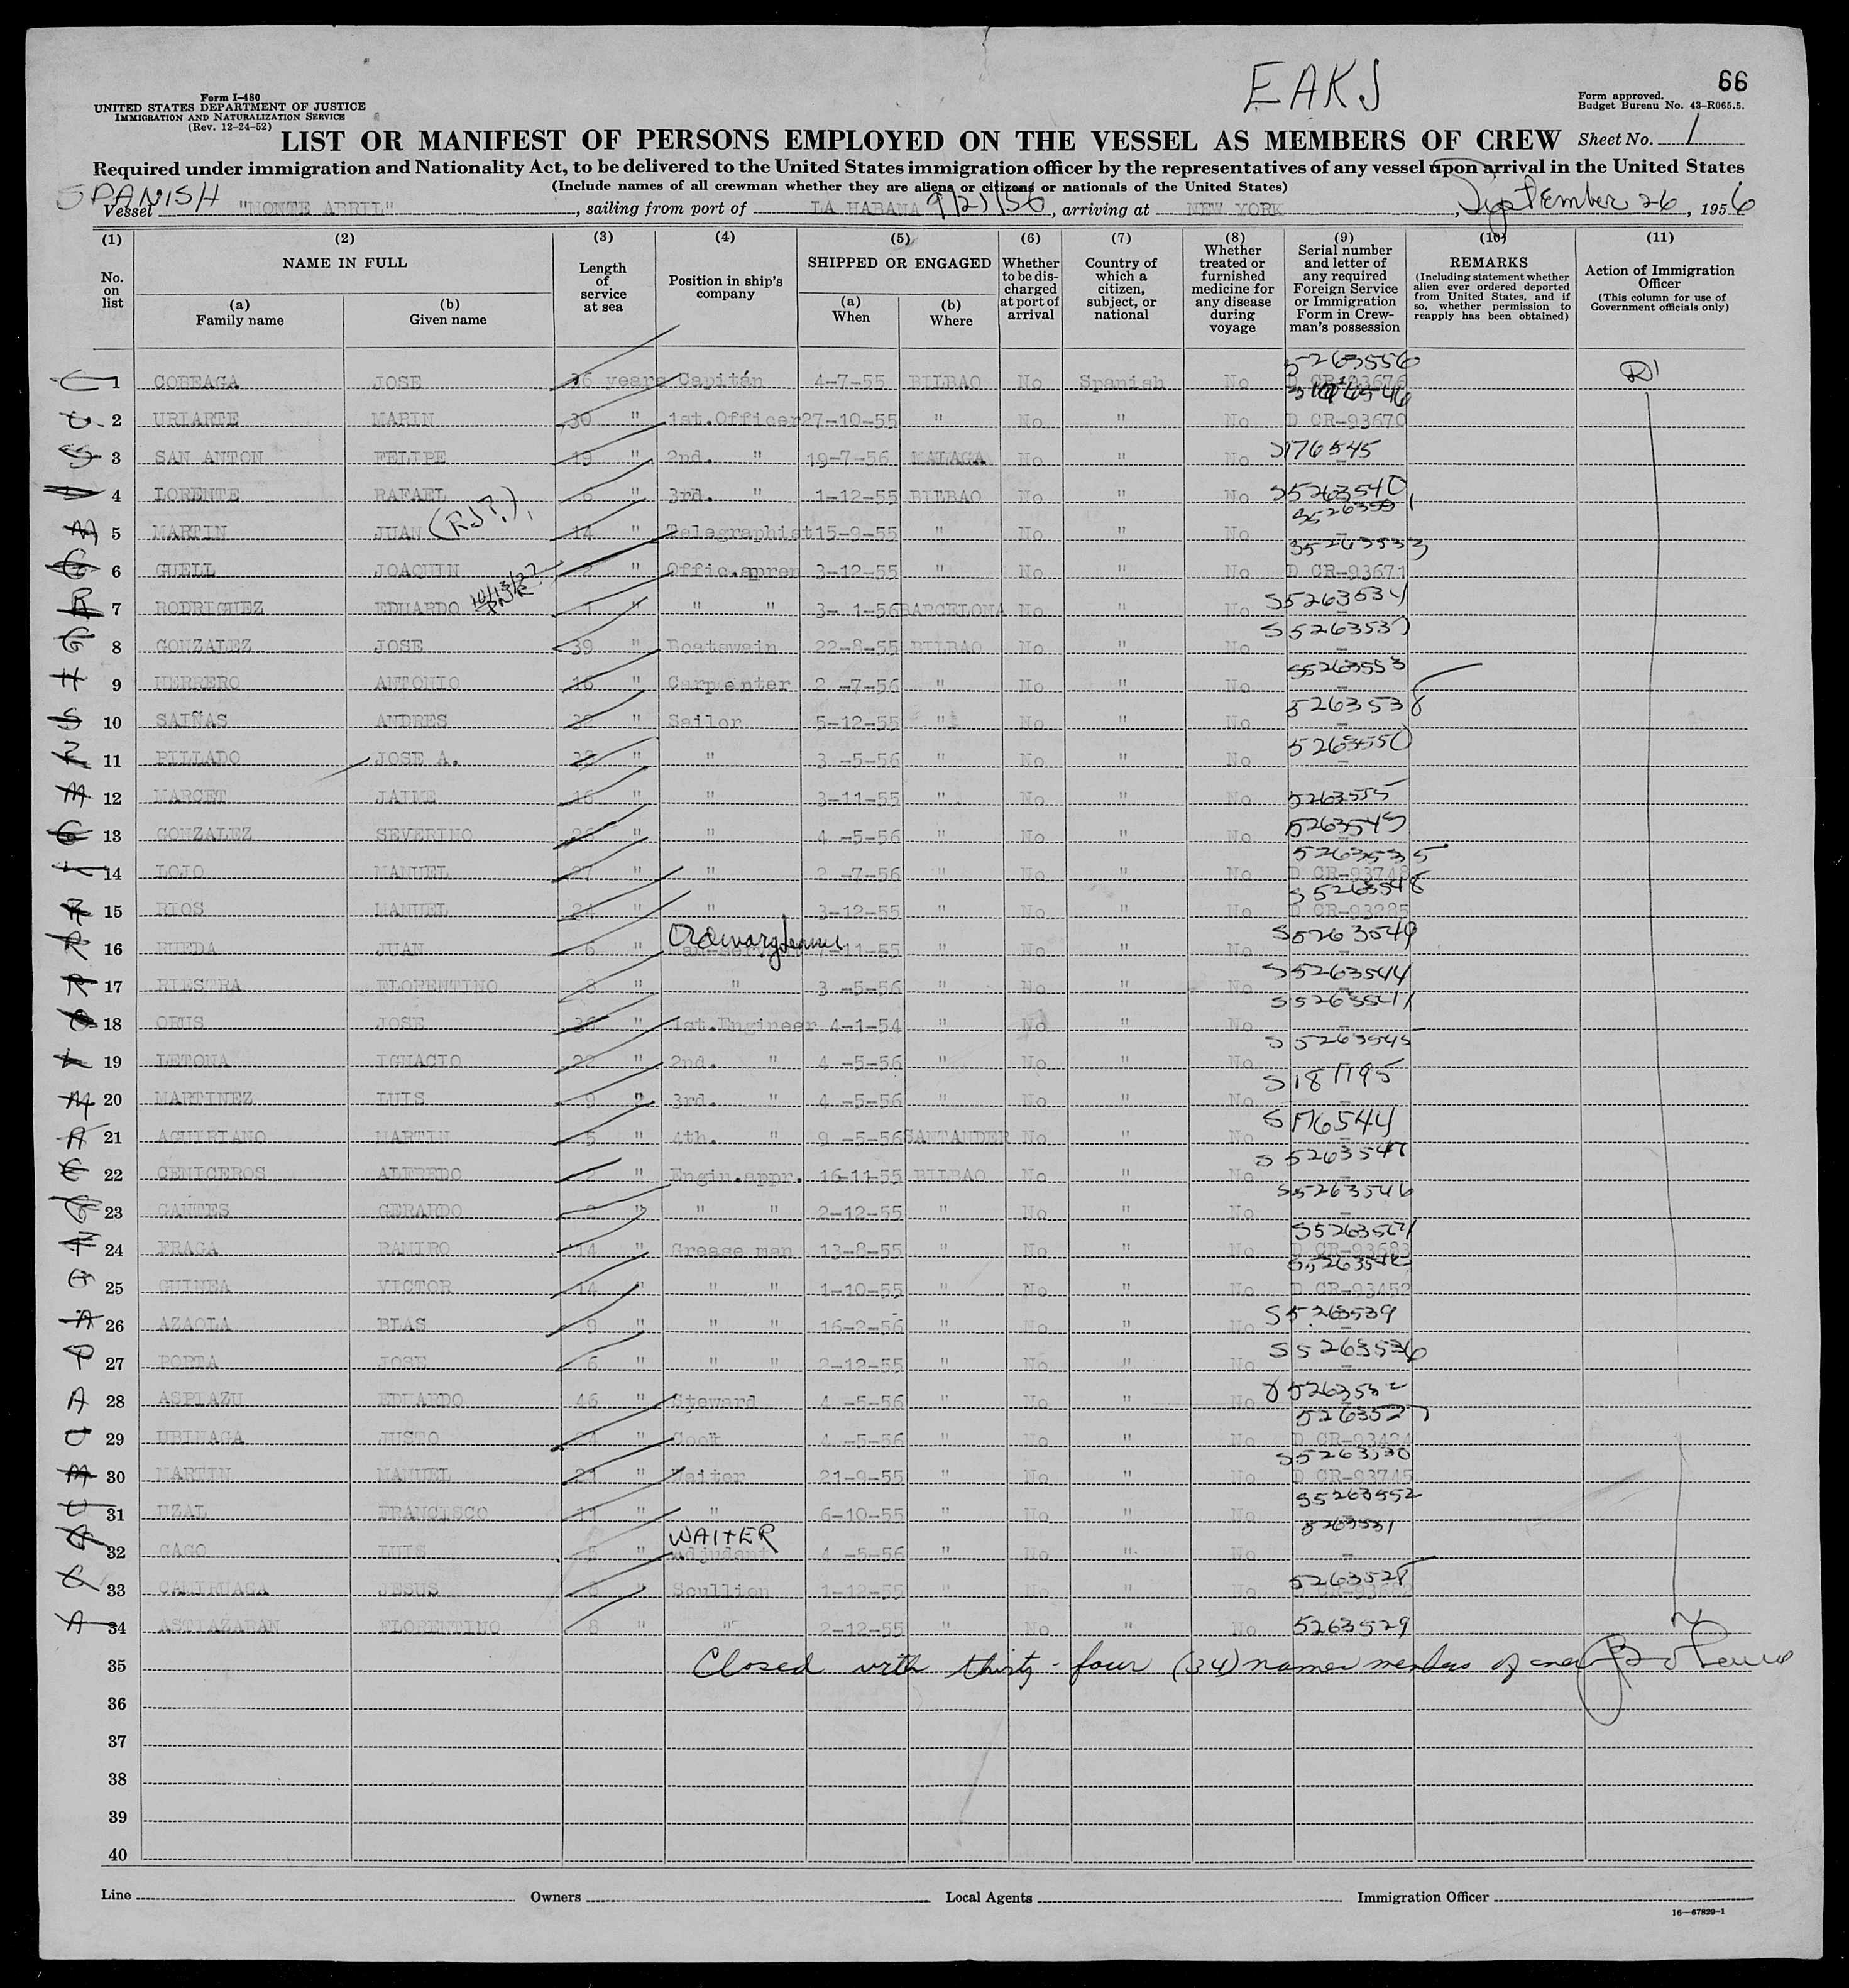 EAKS
66
Form I-480
UNITED STATES DEPARTMENT OF JUSTICE
IMMIGRATION AND NATURALIZATION SERVICE
(Rev. 12-24-52)
Form approved.
Budget Bureau No. 43-R065.5.
LIST OR MANIFEST OF PERSONS EMPLOYED ON THE VESSEL AS MEMBERS OF CREW Sheet No. 1
Required under immigration and Nationality Act, to be delivered to the United States immigration officer by the representatives of any vessel upon arrival in the United States
(Include names of all crewman whether they are aliens or citizens or nationals of the United States)
SPANISH
Vessel "MONTE ABRIL", sailing from port of LA HABANA 9/21/56, arriving at NEW YORK, September 26, 1956
(1) (2) (3) (4) (5) (6) (7) (8) (9) (10) (11)
No. on list
NAME IN FULL
(a) Family name
(b) Given name
Length of service at sea
Position in ship's company
SHIPPED OR ENGAGED
(a) When
(b) Where
Whether to be discharged at port of arrival
Country of which a citizen, subject, or national
Whether treated or furnished medicine for any disease during voyage
Serial number and letter of any required Foreign Service or Immigration Form in Crewman's possession
REMARKS
(Including statement whether alien ever ordered deported from United States, and if so, whether permission to reapply has been obtained)
Action of Immigration Officer
(This column for use of Government officials only)
1 COBEAGA JOSE years Capitán 4-7-55 BILBAO No Spanish No 5263556 D CR-93676
2 URIARTE MARIN 30 " 1st.Officer 27-10-55 " No " No D CR-93670
3 SAN ANTON FELIPE 19 " 2nd. " 19-7-56 MALAGA No " No S176545
4 LORENTE RAFAEL 6 " 3rd. " 1-12-55 BILBAO No " No S5263540
5 MARTIN JUAN 14 " Telegraphist 15-9-55 " No " No
6 GUELL JOAQUIN 2 " Offic.apren 3-12-55 " No " No 5263533 D CR-93671
7 RODRIGUEZ EDUARDO 1 " " " 3-1-56 BARCELONA No " No S5263534
8 GONZALEZ JOSE 39 " Boatswain 22-8-55 BILBAO No " No S5263537
9 HERRERO ANTONIO 16 " Carpenter 2-7-56 " No " No S5263553
10 SAIÑAS ANDRES " Sailor 5-12-55 " No " No 5263538
11 PILLADO JOSE A. " " 3-5-56 " No " No 5263550
12 MARCET JAIME 16 " " 3-11-55 " No " No 5263555
13 GONZALEZ SEVERINO " " 4-5-56 " No " No
14 LOJO MANUEL 27 " " 2-7-56 " No " No 5263535 D CR-93748
15 RIOS MANUEL 24 " " 3-12-55 " No " No S5263548 D CR-93285
16 RUEDA JUAN 6 " Ordinary Seaman -11-55 " No " No S5263549
17 RIESTRA FLORENTINO 8 " " 3-5-56 " No " No S5263544
18 ORUS JOSE " 1st.Engineer 4-1-54 " No " No S5263541
19 LETONA IGNACIO 22 " 2nd. " 4-5-56 " No " No S5263545
20 MARTINEZ LUIS 9 " 3rd. " 4-5-56 " No " No
21 AGUIRIANO MARTIN 5 " 4th. " 9-5-56 SANTANDER No " No S176544
22 CENICEROS ALFREDO 2 " Engin.appr. 16-11-55 BILBAO No " No S5263547
23 GANTES GERARDO 2 " " " 2-12-55 " No " No S5263546
24 FRAGA RAMIRO 14 " Grease man 13-8-55 " No " No D CR-93683
25 GUINEA VICTOR 14 " " " 1-10-55 " No " No D CR-93452
26 AZAOLA BLAS 9 " " " 16-2-56 " No " No S5263539
27 PORTA JOSE 6 " " " 2-12-55 " No " No S5263536
28 ASPIAZU EDUARDO 46 " Steward 4-5-56 " No " No
29 URINAGA JUSTO 24 " Cook 4-5-56 " No " No 5263527 D CR-93424
30 MARTIN MANUEL 21 " Waiter 21-9-55 " No " No S5263530 D CR-93745
31 UZAL FRANCISCO 11 " " 6-10-55 " No " No S5263552
32 GAGO LUIS " WAITER Adjudant 4-5-56 " No " No 5263531
33 CAMIRUAGA JESUS " Scullion 1-12-55 " No " No 5263528
34 ASTIAZARAN FLORENTINO 8 " " 2-12-55 " No " No 5263529
35 Closed with thirty-four (34) names members of crew
36
37
38
39
40
Line Owners Local Agents Immigration Officer
16-67829-1